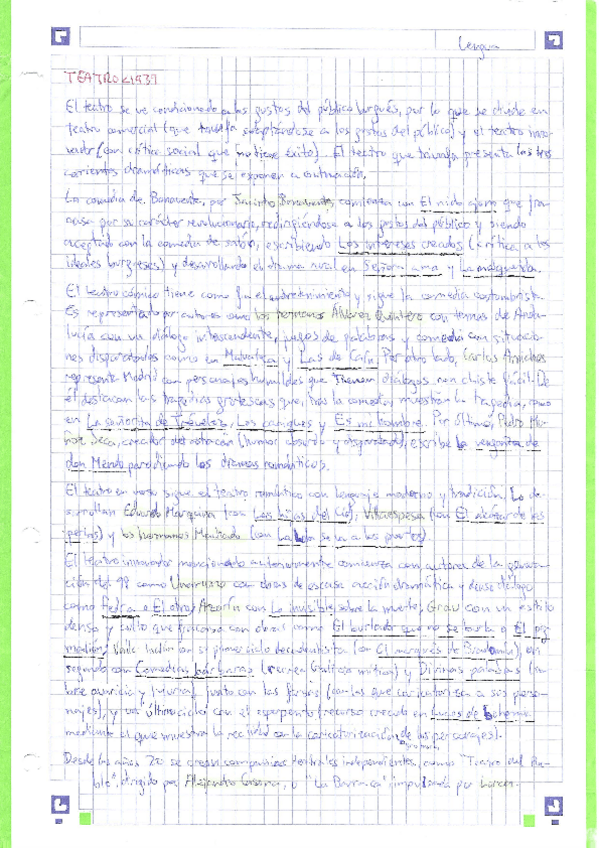 Lengua
TEATRO <1939
El teatro se ve condicionado a los gustos del público burgués, por lo que se divide en
teatro comercial (que triunfa adaptándose a los gustos del público) y el teatro inno-
vador (con crítica social que no tiene éxito). El teatro que triunfa presenta las tres
corrientes dramáticas que se exponen a continuación.
La comedia de Benavente, por Jacinto Benavente, comienza con El nido ajeno que fra-
casa por su carácter revolucionario, redirigiéndose a los gustos del público y siendo
aceptado con la comedia de salón, escribiendo Los intereses creados (crítica a los
ideales burgueses) y desarrollando el drama rural en Señora ama y La malquerida.
El teatro cómico tiene como fin el entretenimiento y sigue la comedia costumbrista.
Es representado por autores como los hermanos Álvarez Quintero con temas de Anda-
lucía con un diálogo intrascendente, juegos de palabras y comedia con situacio-
nes disparatadas como en y Las de Caín. Por otro lado, Carlos Arniches
representa Madrid con personajes humildes que diálogos con chiste fácil. De
él destacan las tragedias grotescas que, tras la comedia, muestran la tragedia, como
en La señorita de Trévelez, Los caciques y Es mi hombre. Por último, Pedro Mu-
ñoz Seca, creador del astracán (humor absurdo y disparatado), escribe La venganza de
don Mendo parodiando los dramas románticos.
El teatro en verso sigue el teatro romántico con lenguaje moderno y tradición. Lo de-
sarrollan Eduardo Marquina (con Las hijas del Cid), Villaespesa (con El alcázar de las
perlas) y los hermanos Machado (con La Lola se va a los puertos).
El teatro innovador mencionado anteriormente comienza con autores de la genera-
ción del 98 como Unamuno con obras de escasa acción dramática y denso diálogo
como Fedra o El otro; Azorín con Lo invisible, sobre la muerte; Grau con un estilo
denso y culto que fracasa con obras como El burlador que no se burla o El pig-
malión; Valle Inclán con su primer ciclo decadentista (con El marqués de Bradomín), un
segundo con Comedias bárbaras (recrea Galicia mítica) y Divinas palabras (so-
bre avaricia y lujuria) junto con las farsas (con las que caricaturiza a sus perso-
najes), y un último ciclo con el esperpento (recurso creado en Luces de bohemia
mediante el que muestra la realidad con la caricaturización de los personajes).
Desde los años 20 se crean compañías teatrales independientes como "Teatro del Pue-
blo", dirigido por Alejandro Casona, o "La Barraca" impulsada por Lorca.